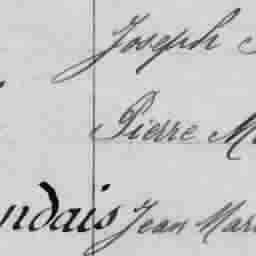 Joseph
Pierre
ndais Jean Mari